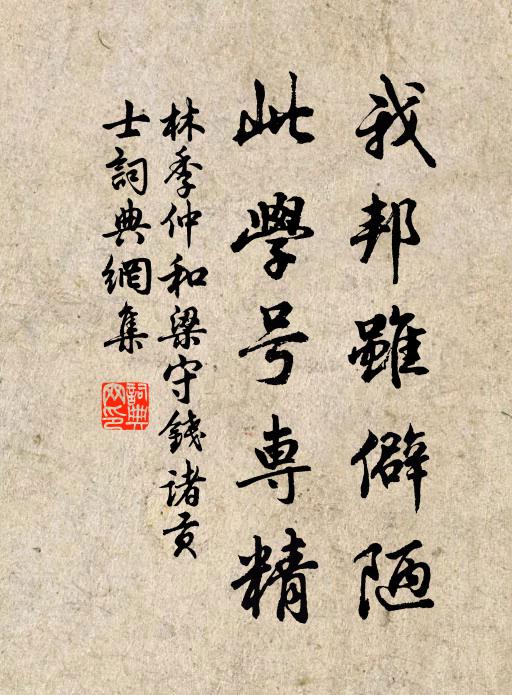 我邦雖僻陋
此學号専精
林季仲和梁守錢诸贡
士詞典網集
詞典
网印